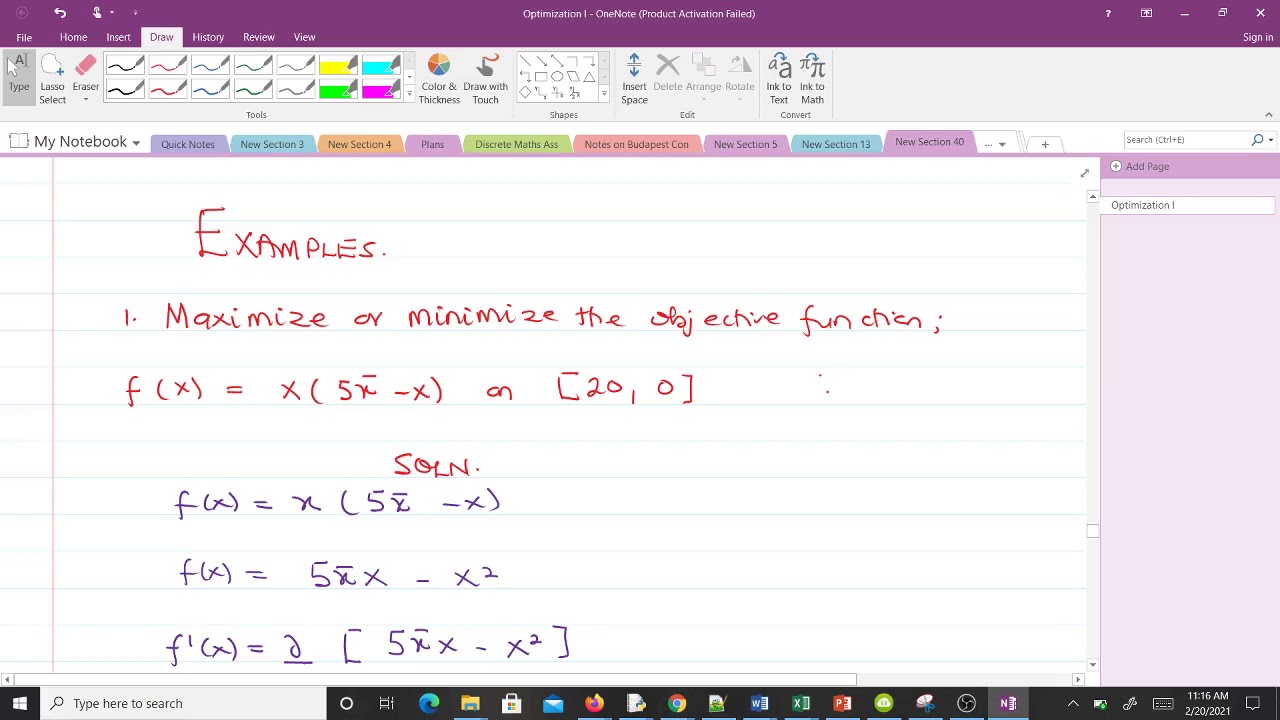 Optimization I - OneNote (Product Activation Failed)
File Home Insert Draw History Review View Sign in
Type Lasso Select Eraser Color & Thickness Draw with Touch Insert Space Delete Arrange Rotate Ink to Text Ink to Math
Tools Shapes Edit Convert
My Notebook Quick Notes New Section 3 New Section 4 Plans Discrete Maths Ass Notes on Budapest Con New Section 5 New Section 13 New Section 40 ... Search (Ctrl+E)
Add Page
Optimization I
EXAMPLES.
1. Maximize or minimize the objective function;
f(x) = x(5π - x) on [20, 0]
SOLN.
f(x) = x(5π - x)
f(x) = 5πx - x²
f'(x) = ∂ [5πx - x²]
Type here to search
11:16 AM
2/20/2021